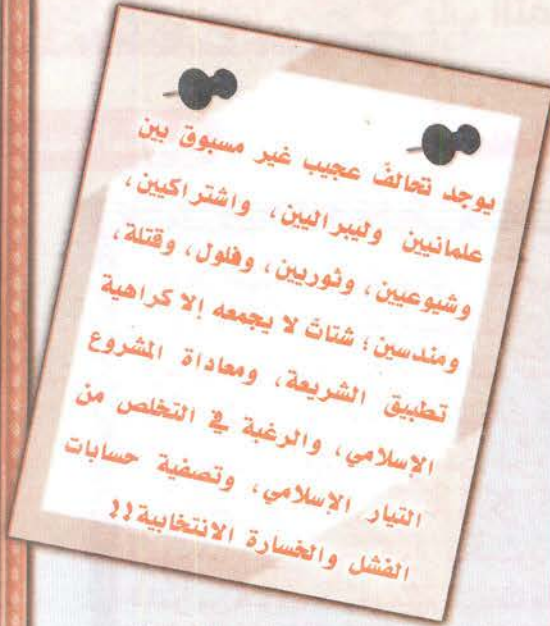 يوجد تحالفٌ عجيب غير مسبوق بين
علمانيين وليبراليين، واشتراكيين،
وشيوعيين، وثوريين، وفلول، وقتلة،
ومندسين؛ شتاتٌ لا يجمعه إلا كراهية
تطبيق الشريعة، ومعاداة المشروع
الإسلامي، والرغبة في التخلص من
التيار الإسلامي، وتصفية حسابات
الفشل والخسارة الانتخابية!!